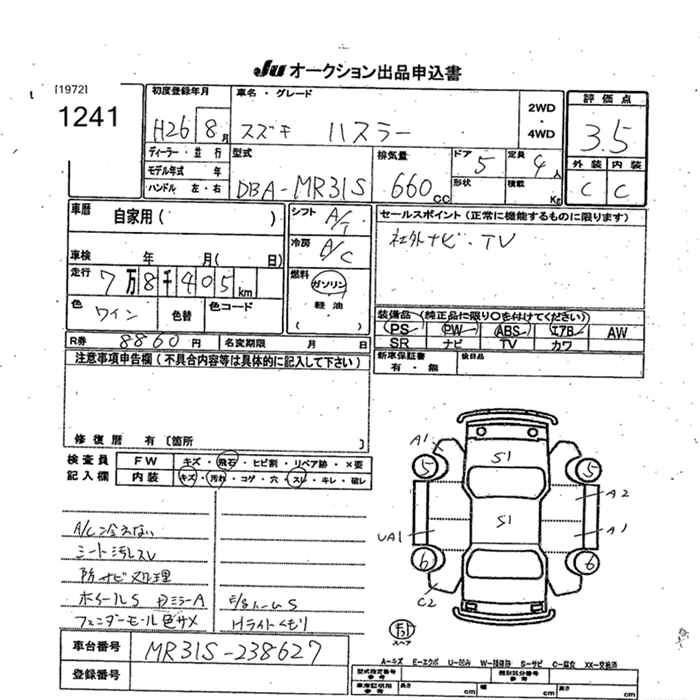 Ju オークション出品申込書
[1972]
1241
初度登録年月
H26 8月
車名・グレード
スズキ ハスラー
2WD
・
4WD
評価点
3.5
外装 内装
C C
ディーラー・並行
モデル年式 年
ハンドル 左・右
型式
DBA-MR31S
排気量
660 cc
ドア 5
形状
定員 4人
積載 Kg
車歴
自家用( )
車検 年 月( 日)
走行
7万8千405km
色 ワイン
色替
色コード
シフト A/T
冷房 A/C
燃料
ガソリン
軽油
( )
セールスポイント(正常に機能するものに限ります)
社外ナビ・TV
装備品 (純正品に限り○を付けてください)
PS PW ABS エアB AW
SR ナビ TV カワ
新車保証書
有・無
後日品
R券 8860円
名変期限 月 日
注意事項申告欄(不具合内容等は具体的に記入して下さい)
修復歴 有〔箇所 〕
検査員
記入欄
FW キズ・飛石・ヒビ割・リペア跡・×要
内装 キズ・汚れ・コゲ・穴・スレ・キレ・破レ
A/C冷えない
シート汚スレ
防ナビ処理
ホイールS
フェンダーモール色サメ
Hライトくもり
A1
S1
5
5
A2
UA1
S1
A1
6
6
C2
スペア
車台番号 MR31S-238627
登録番号
A-キズ E-エクボ U-凹み W-補修跡 S-サビ C-腐食 XX-交換済
型式指定番号
参考
類別区分番号
車庫証明用
参考
長さ cm
幅 cm
高さ cm